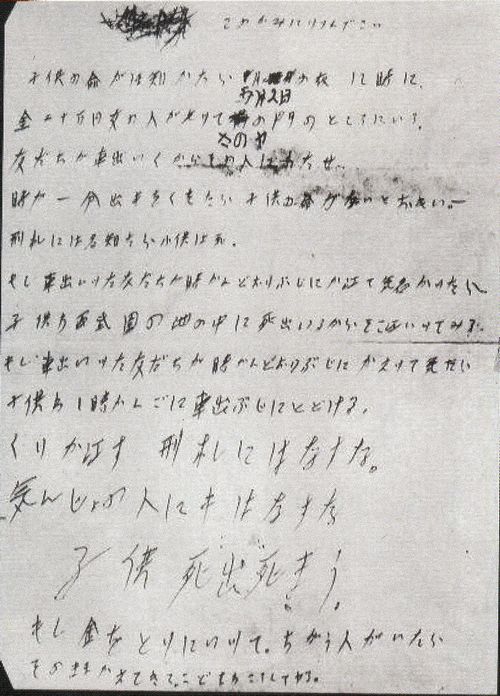 このかみにツツんでこい
子供の命がほ知かたら 五月2日の夜12時に、
金二十万円女の人がもッてさのヤの門のところにいろ。
友だちが車出いくからその人にわたせ。
時が一分出もをくれたら子供の命がないとおもい。
刑札には名知たら小供は死。
もし車出いッた友だちが時かんどおりぶじにかえて気なかッたら
子供わ西武園の池の中に死出いるからそこえいッてみろ。
もし車出いッた友だちが時かんどおりぶじにかえッて気たら
子供わ1時かんごに車出ぶじにとどける。
くりかえす 刑札にはなすな。
気んじょの人にもはなすな
子供死出死まう。
もし金をとりにいッて、ちがう人がいたら
そのままかえてきて、こどもわころしてヤる。